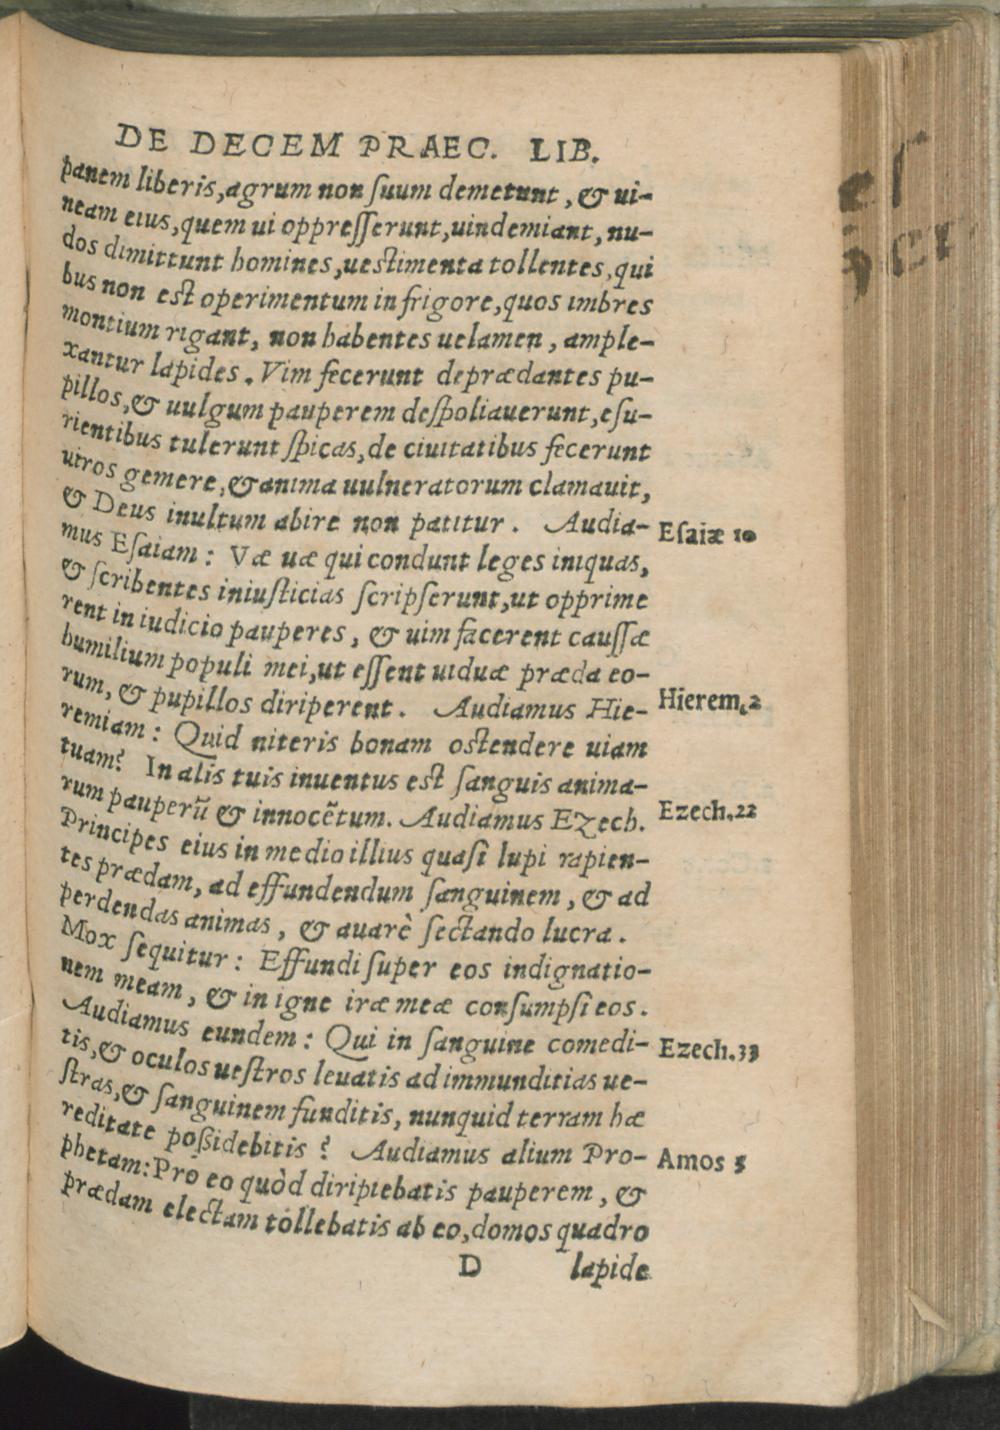 DE DECEM PRAEC. LIB.
panem liberis, agrum non suum demetunt, & ui-
neam eius, quem ui oppresserunt, uindemiant, nu-
dos dimittunt homines, uestimenta tollentes, qui
bus non est operimentum in frigore, quos imbres
montium rigant, non habentes uelamen, ample-
xantur lapides. Vim fecerunt deprædantes pu-
pillos, & uulgum pauperem despoliauerunt, esu-
rientibus tulerunt spicas, de ciuitatibus fecerunt
uiros gemere, & anima uulneratorum clamauit,
& Deus inultum abire non patitur. Audia-
Esaiæ 10
mus Esaiam: Væ uæ qui condunt leges iniquas,
& scribentes iniusticias scripserunt, ut opprime
rent in iudicio pauperes, & uim facerent caussæ
humilium populi mei, ut essent uiduæ præda eo-
rum, & pupillos diriperent. Audiamus Hie-
Hierem. 2
remiam: Quid niteris bonam ostendere uiam
tuam? In alis tuis inuentus est sanguis anima-
rum pauperū & innocētum. Audiamus Ezech.
Ezech. 22
Principes eius in medio illius quasi lupi rapien-
tes prædam, ad effundendum sanguinem, & ad
perdendas animas, & auarè sectando lucra.
Mox sequitur: Effundi super eos indignatio-
nem meam, & in igne iræ meæ consumpsi eos.
Audiamus eundem: Qui in sanguine comedi-
Ezech. 33
tis, & oculos uestros leuatis ad immunditias ue-
stras, & sanguinem funditis, nunquid terram hæ
reditate poßidebitis? Audiamus alium Pro-
Amos 5
phetam: Pro eo quòd diripiebatis pauperem, &
prædam electam tollebatis ab eo, domos quadro
D lapide